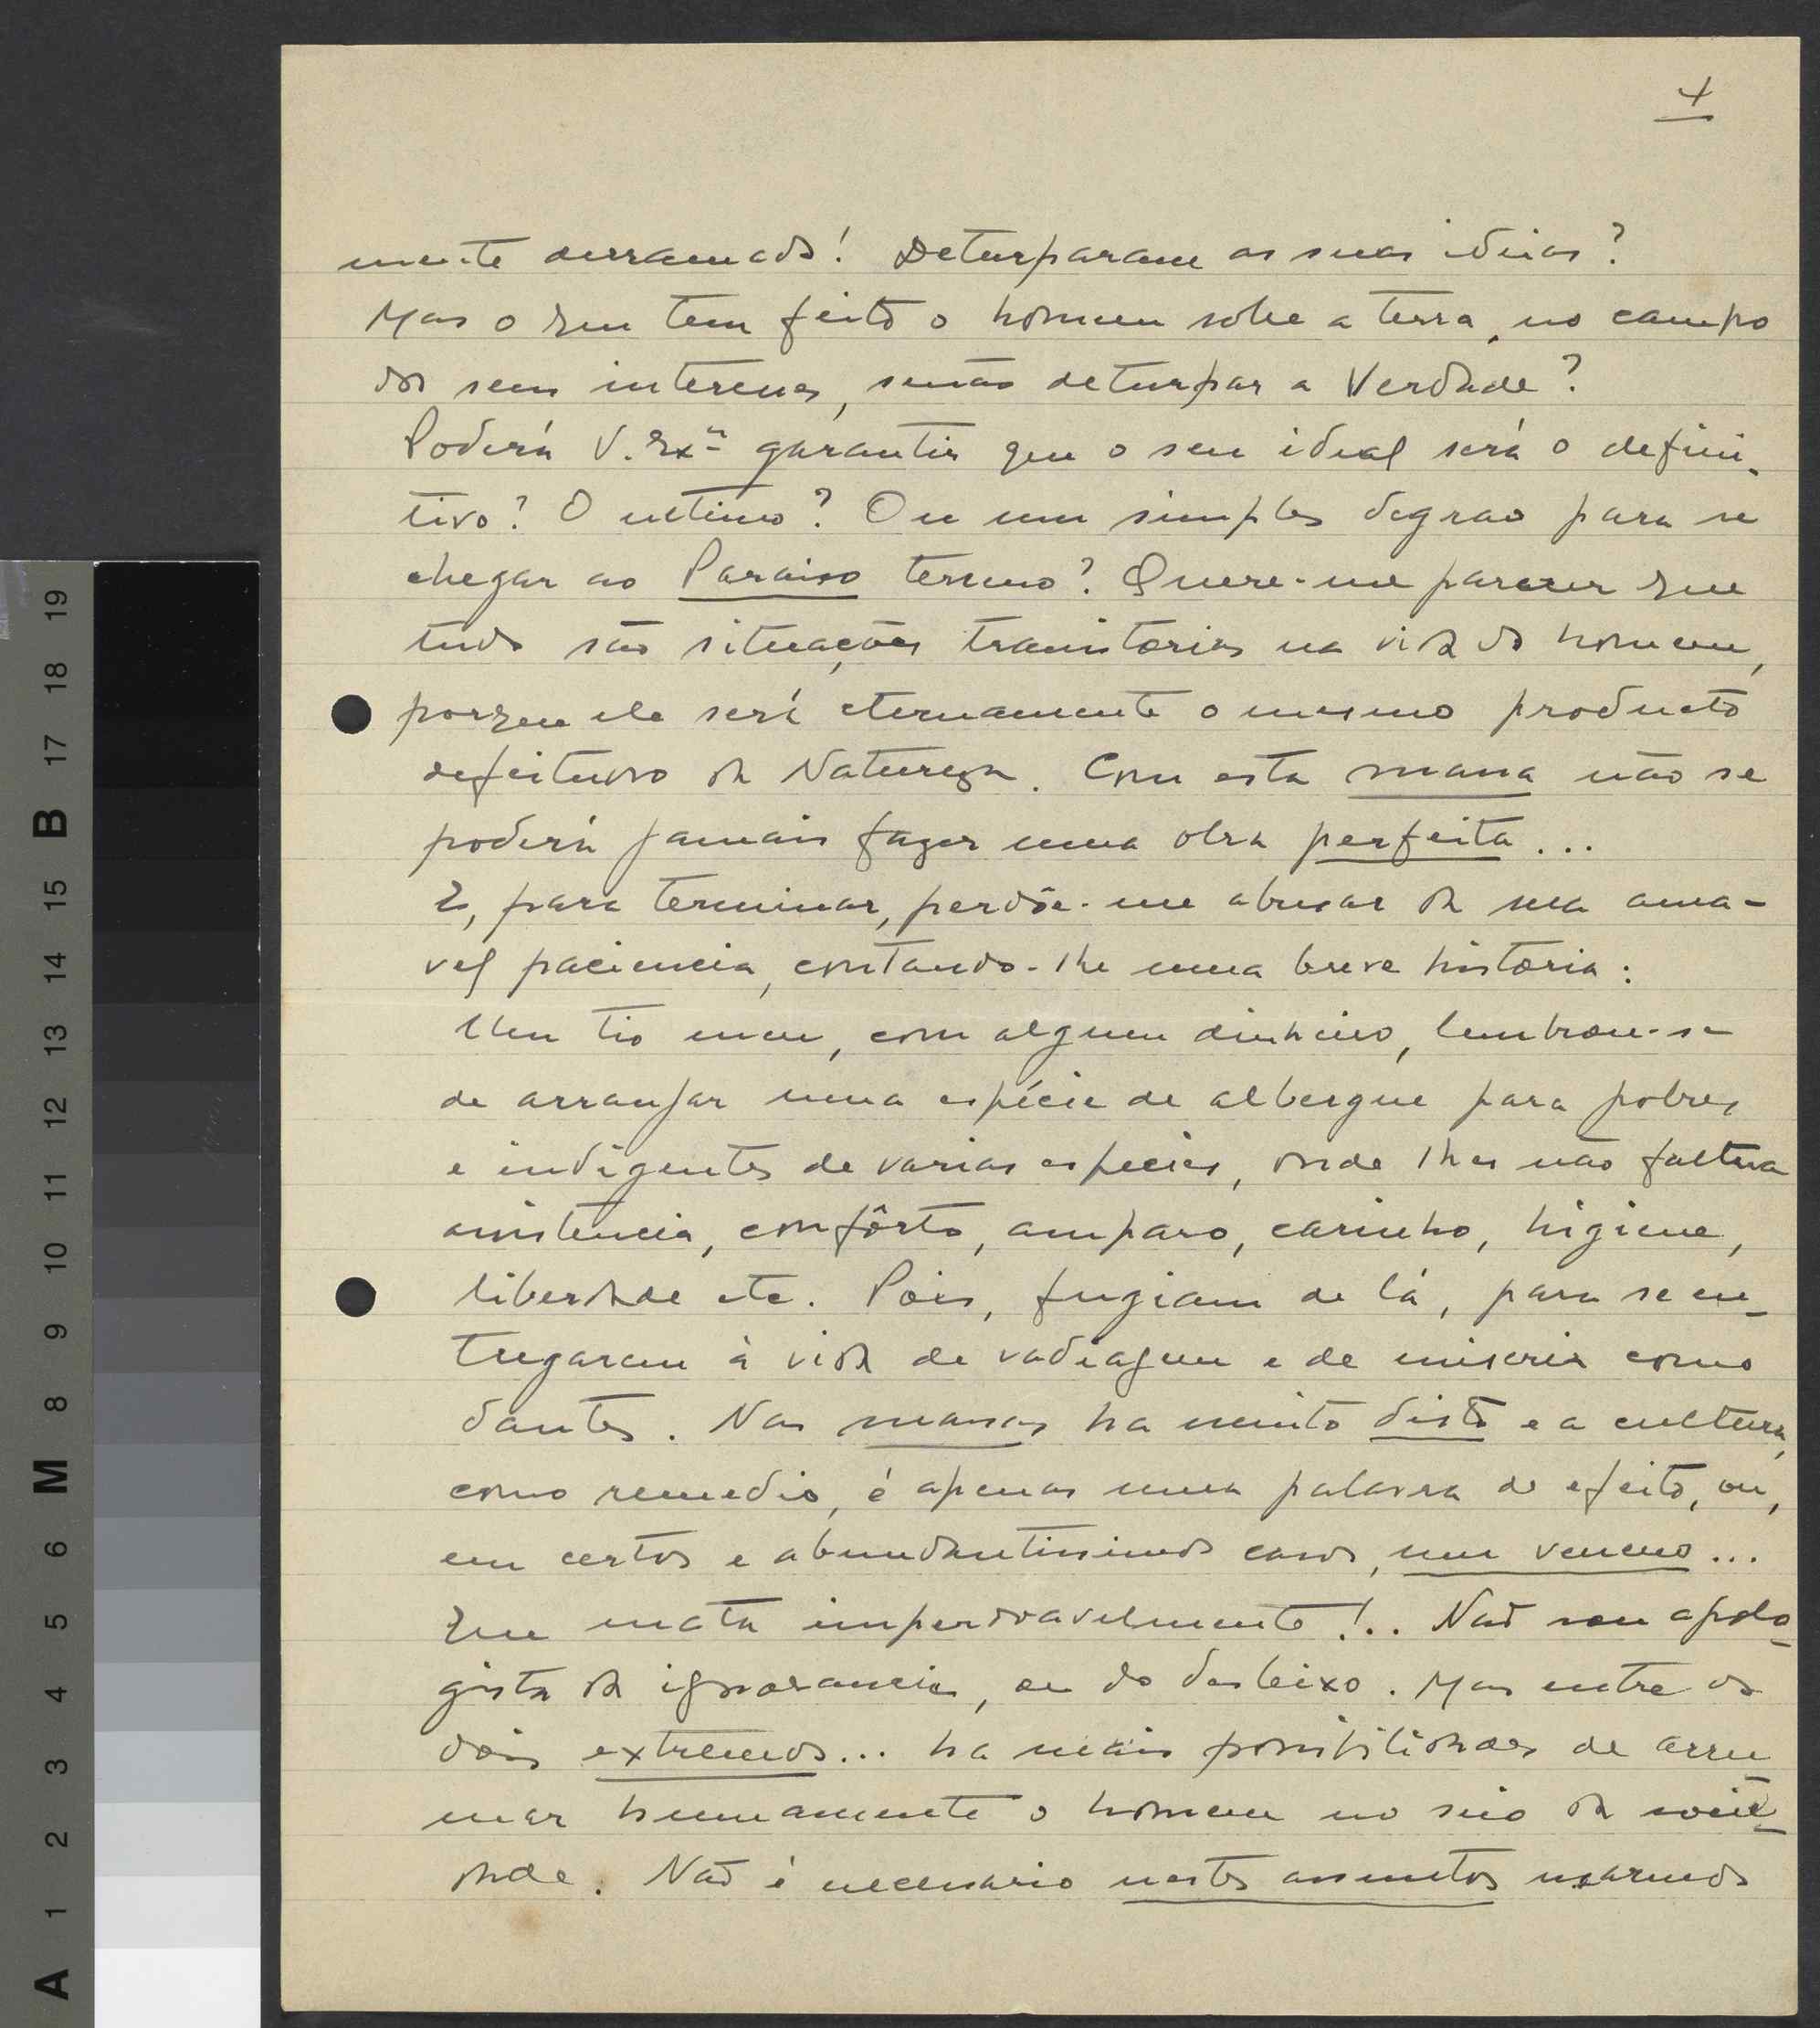 4
mente derramado! Deturparam as suas ideias?
Mas o que tem feito o homem sobre a terra, no campo
dos seus interesses, senão deturpar a Verdade?
Poderá V. Exª garantir que o seu ideal será o defini-
tivo? O ultimo? Ou um simples degrao para se
chegar ao Paraiso terreno? Quere-me parecer que
tudo são situações transitorias na vida do homem,
porque ele será eternamente o mesmo producto
defeituoso da Natureza. Com esta massa não se
poderá jamais fazer uma obra perfeita...
E, para terminar, perdôe-me abusar da sua ama-
vel paciencia, contando-lhe uma breve historia:
Um tio meu, com algum dinheiro, lembrou-se
de arranjar uma espécie de albergue para pobres
e indigentes de varias especies, onde lhes não faltava
assistencia, confôrto, amparo, carinho, higiene,
liberdade etc. Pois, fugiam de lá, para se en-
tregaram à vida de vadiagem e de miseria como
dantes. Nas massas ha muito disto e a cultura,
como remedio, é apenas uma palavra de efeito, ou,
em certos e abundantissimos casos, um veneno...
Que mata imperdoavelmente!.. Não sou apolo-
gista da ignorancia, ou do desleixo. Mas entre os
dois extremos... ha mais possibilidades de arru
mar humanamente o homem no seio da socie-
dade. Não é necessario nestes assuntos usarmos
A 1 2 3 4 5 6 M 8 9 10 11 12 13 14 15 B 17 18 19